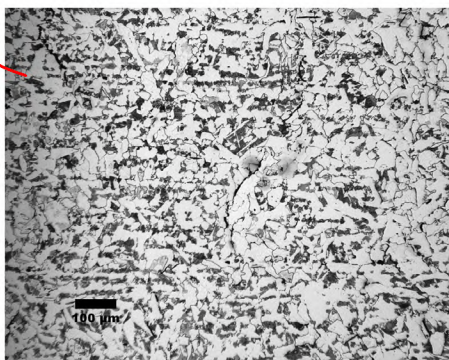 100 µm